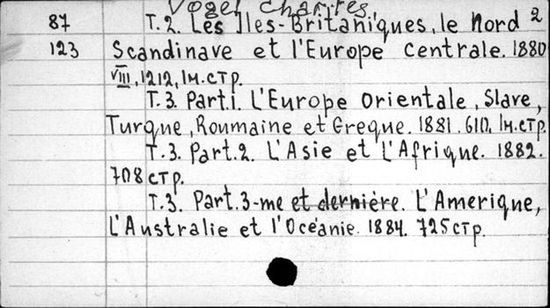 Vogel Charles 2
87 T.2. Les Iles-Britaniques, le Nord
123 Scandinave et l'Europe centrale. 1880
VIII, 1212, 1м.стр.
T.3. Part.1. L'Europe Orientale, Slave,
Turque, Roumaine et Greque. 1881. 610, 1м.стр.
T.3. Part.2. L'Asie et L'Afrique. 1882.
708 стр.
T.3. Part.3-me et dernière. L'Amerique,
L'Australie et l'Océanie. 1884. 725 стр.